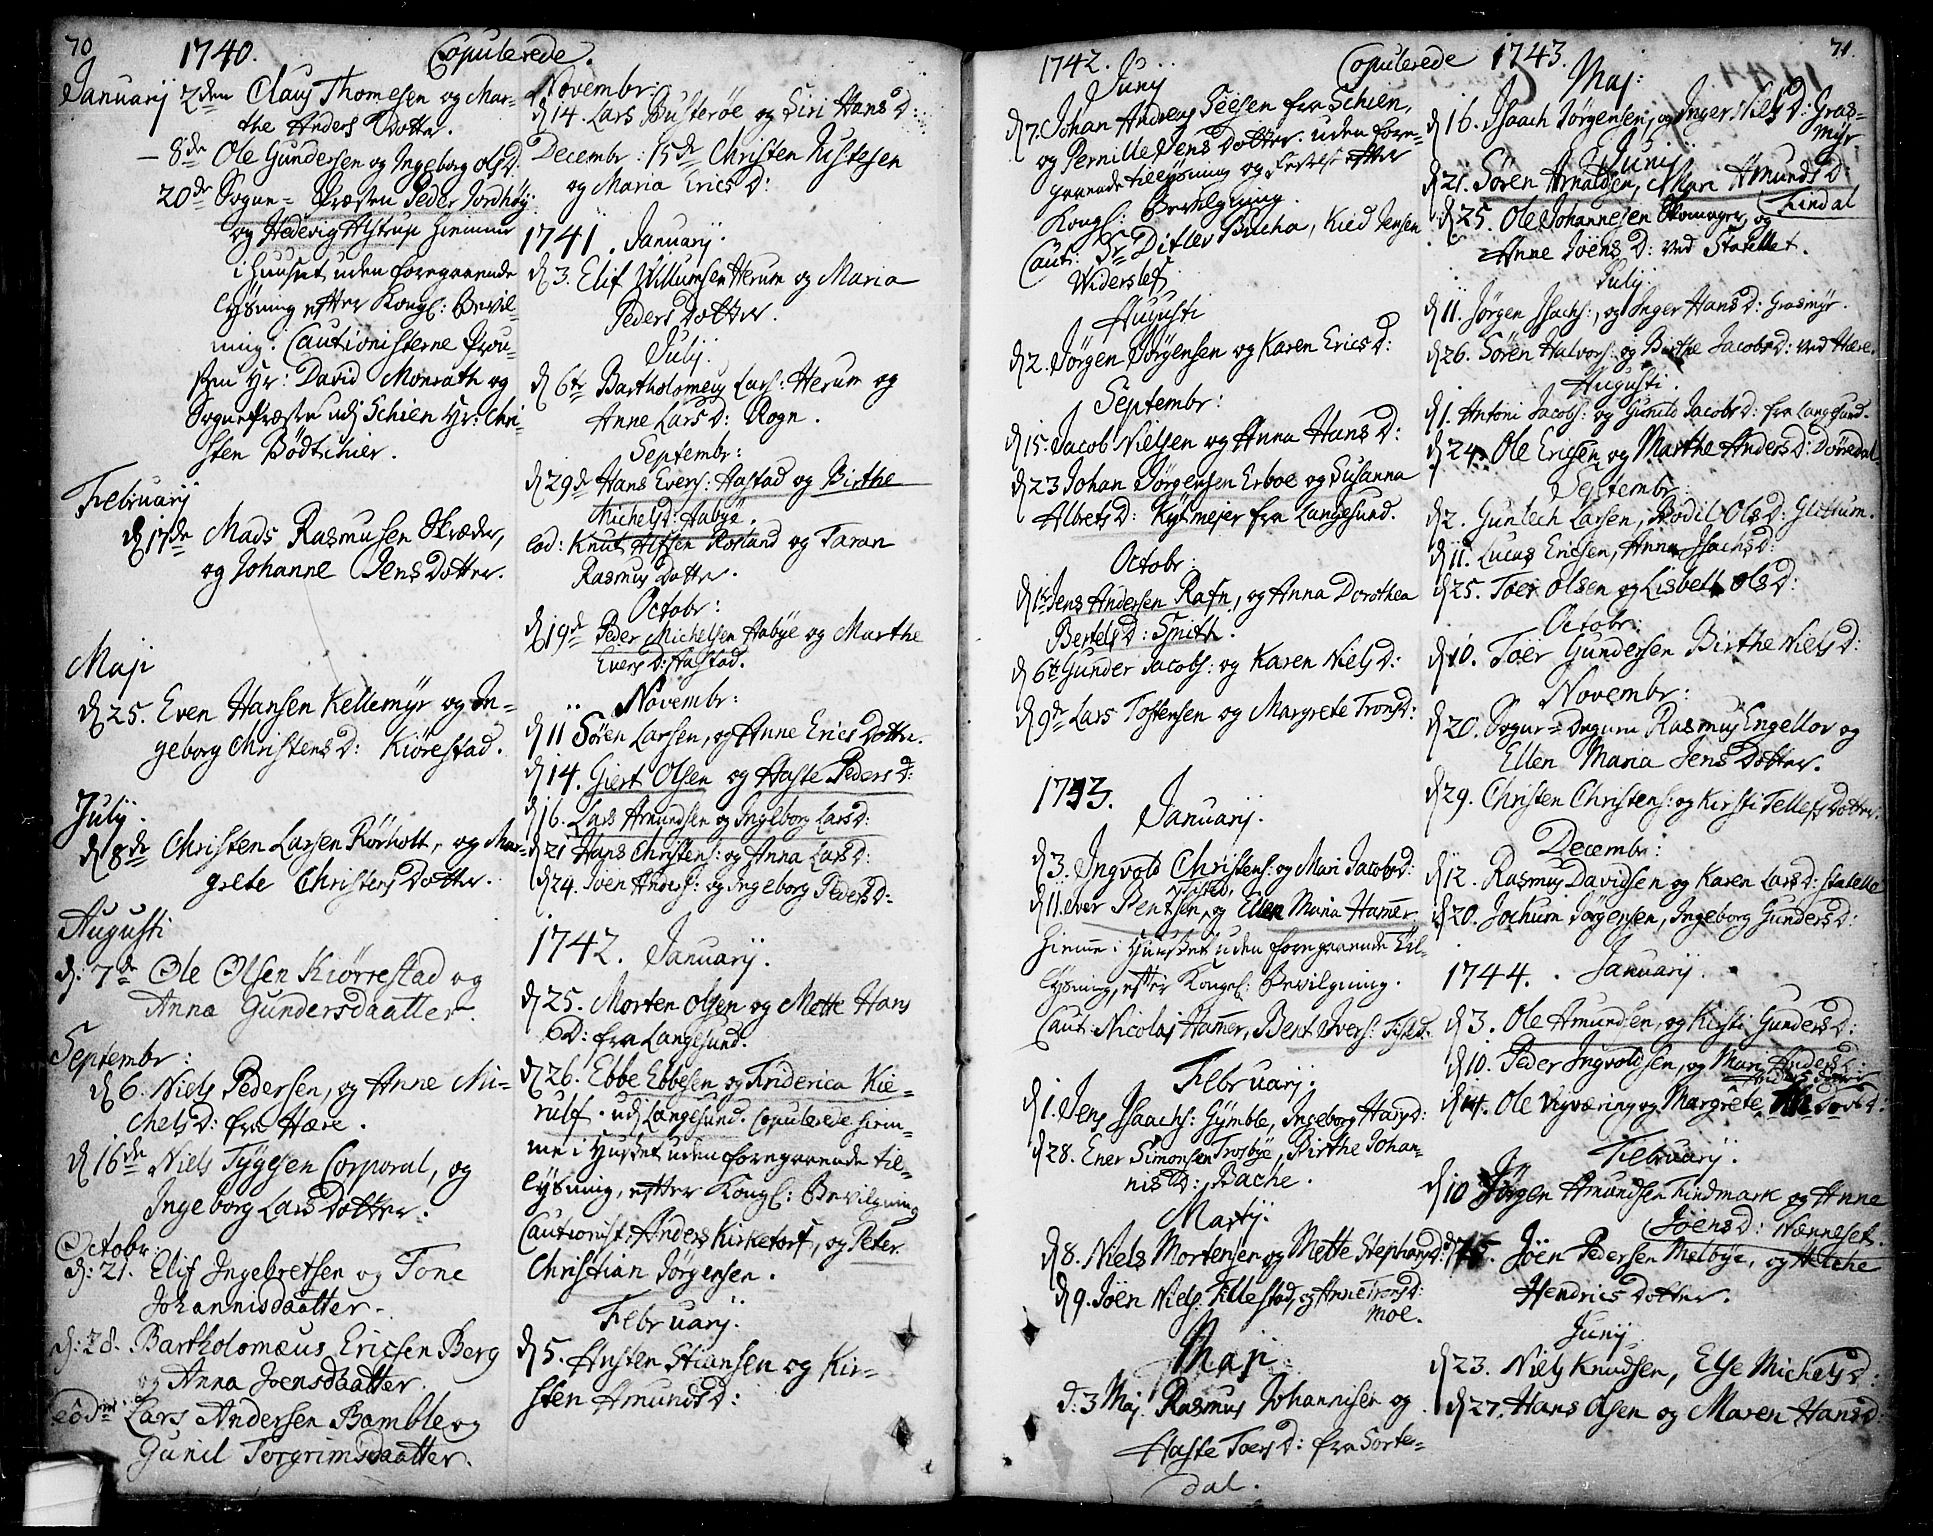 70
1740. Copulerede.
Januarij 2den Claus Thomesen og Mar-
the Anders Dotter.
- 8de Ole Gundersen og Ingeborg Ols D.
20de Sogne-Præsten Peder Jordhøy
og Hedevig Alstrup hiemme
i Huuset uden foregaaende
lysning efter Kongl: Bevil-
ning. Cautionisterne Prou-
sten Hr: David Monrath og
Sognepræsten udj Schien Hr: Chri-
sten Bodtcher.
Februarij
d 17de Mads Rasmusen Skræder,
og Johanne Jens Dotter.
Maji
d 25. Even Hansen Kellemyr og In-
geborg Christens D: Kiørestad.
Julij.
d 8de Christen Larsen Rørholt, og Mar-
grete Christens Dotter.
Augusti
d: 7de Ole Olsen Kiørrestad og
Anna Gundersdaatter.
Septembr:
d 6. Niels Pedersen, og Anne Mi-
chels D: fra Hære.
d 16de Niels Tygesen Corporal, og
Ingeborg Lars Dotter.
Octobr:
d: 21. Elif Ingebretsen og Tone
Johannisdaatter.
d: 28. Bartholomæus Ericsen Berg
og Anna Joensdaatter.
eodm Lars Andersen Bamble og
Gunil Torgrimsdaatter.
Novembr:
d 14. Lars Busterøe og Siri Hans D:
Decembr: 15de Christen Justesen
og Maria Erics D:
1741. Januarij.
d 3. Elif Willumsen Herum og Maria
Peders Dotter.
Julij.
d 6te Bartholomeus Lars: Herum og
Anne Lars D: Rogn.
Septembr:
d 29de Hans Evers: Aastad og Birthe
Michels D: Aabye.
eod: Knut Alfsen Rørland og Taran
Rasmus Dotter.
Octobr:
d 19de Peder Michelsen Aabye og Marthe
Evers D: Aastad.
Novembr:
d 11 Søren Larsen, og Anne Erics Dotter.
d 14. Giert Olsen og Aaste Peders D:
d 16. Lars Amundsen og Ingeborg Lars D:
d 21 Hans Christens: og Anna Lars D:
d 24. Joen Anders: og Ingeborg Peders D:
1742. Januarij.
d 25. Morten Olsen og Mette Hans
D: fra Langesund.
d 26. Ebbe Ebbesen og Friderica Kie-
rulf. udj Langesund. Copulerede hiem-
me i Huset uden foregaaende til-
lysning, efter Kongl: Bevilgning
Cautionist: Anders Kirketorf, og Peter
Christian Jørgensen.
Februarij.
d 5. Austen Stiansen og Kir-
sten Amunds D:
1742. Copulerede 1743. 71.
Junij
d 7. Johan Andreas Seesen fra Schien,
og Pernille Jens Dotter. uden fore-
gaaende tillysning og efter
Kongl: Bevilgning.
Caut: Sr Ditlev Bucha, Kield Jensen
Widerslef.
Augusti
d 2. Jørgen Jørgensen og Karen Erics D:
Septembr:
d 15. Jacob Nielsen og Anna Hans D:
d 23 Johan Jørgensen Erboe og Susanna
Albrets D: Kytmejer fra Langesund.
Octobr.
d 1te Jens Andersen Rafn, og Anna Dorothea
Bertels D: Smith.
d 6te Gunder Jacobs: og Karen Niels D:
d 9de Lars Tostensen og Margrete Trons D:
1743.
Januarij.
d 3. Ingvold Christens: og Mari Jacobs D:
d 11. Ever Bentsen Tisted, og Ellen Maria Hamer
hieme i Huuset uden foregaaende til-
lysning, efter Kongel: Bevilgning.
Caut: Nicolai Hamer, Bent Ivers: Tisted.
Februarij:
d 1. Jens Isaachs: Gymble, Ingeborg Hans D:
d 28. Ener Simonsen Trosbye, Birthe Johan-
nis D: Bache.
Martij.
d 8. Niels Mortensen og Mette Stephans D:
d 9. Joen Niels: Tillestad, og Anne Trons D:
Moe.
Maji
d: 3 Maj. Rasmus Johannisen og
Aaste Toers D: fra Sorte-
dal.
Maj:
d 16. Isaach Jørgensen, og Inger Niels D: Gras-
myr.
Junij.
d 21. Søren Arnalden, Mari Amunds D:
Findal
d 25. Ole Johannesen Skomager, og
Anne Joens D: ved Statellet.
Julij.
d 11. Jørgen Isachs:, og Inger Hans D: Grasmyr.
d 26. Søren Halvors: og Birthe Jacobs D: ved Hære.
Augusti.
d 1. Antoni Jacobs: og Gunild Jacobs D: fra Langesund.
d 24. Ole Ericsen og Marthe Anders D: Dørredal.
Septembr:
d 2. Gunlech Larsen, Bodil Ols D: Glottum.
d 11. Lucas Ericsen, Anna Isachs D:
d 25. Toer Olsen og Lisbett Ols D:
Octobr:
d 10. Toer Gundersen Birthe Niels D:
Novembr:
d 20. Sogne-Degnen Rasmus Engellov og
Ellen Maria Jens Dotter.
d 29. Christen Christens: og Kirsti Tellefs Dotter.
Decembr:
d 12. Rasmus Davidsen og Karen Lars D: Statelle
d 20. Jochum Jørgensen, Ingeborg Gunders D:
1744. Januarij.
d 3. Ole Amundsen, og Kirsti Gunders D:
d 10. Peder Ingvoldsen, og Mari Anders D:
d 14. Ole Vigværing og Margrete
Februarij.
d 10 Jørgen Amundsen Findmark og Anne
Joens D: Nænneset.
d 15. Joen Pedersen Melbye, og Helche
Hendrics Dotter.
Junij
d 23. Niels Knudsen, Else Michels D:
d 27. Hans Olsen og Maren Hans D: